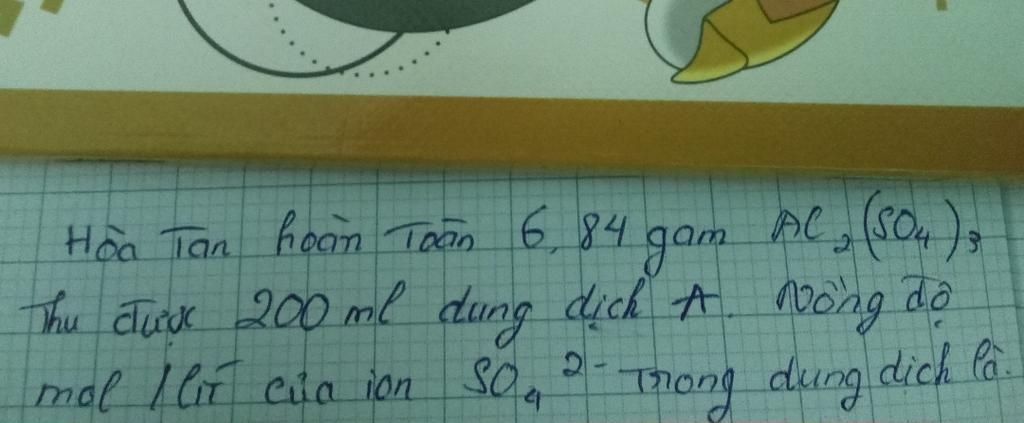 Hòa Tan hoàn Toàn 6,84 gam Al₂(SO₄)₃
Thu được 200 ml dung dịch A. Nồng độ
mol /lít của ion SO₄²⁻ Trong dung dịch là.